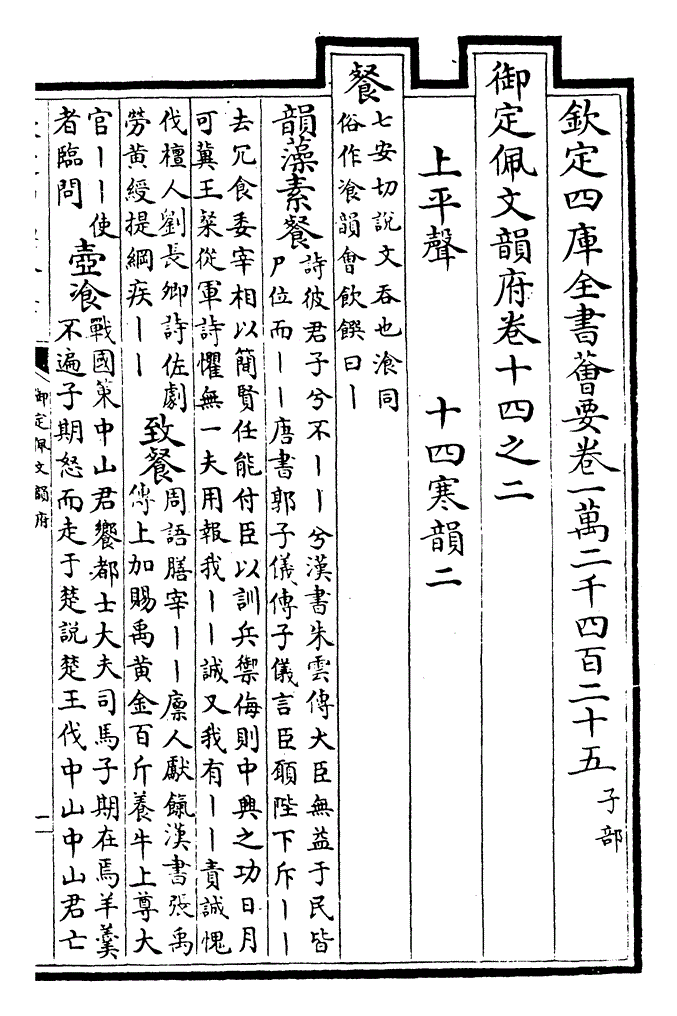 欽定四庫全書薈要卷一萬二千四百二十五 子部
御定佩文韻府卷十四之二
上平聲 十四寒韻二
餐
七安切說文吞也飡同
俗作湌韻會飲饌曰丨
韻藻素餐
詩彼君子兮不丨丨兮漢書朱雲傳大臣無益于民皆
尸位而丨丨唐書郭子儀傳子儀言臣願陛下斥丨丨
去冗食委宰相以簡賢任能付臣以訓兵禦侮則中興之功日月
可冀王粲從軍詩懼無一夫用報我丨丨誠又我有丨丨責誠愧
伐檀人劉長卿詩佐劇
勞黄綬提綱疾丨丨
致餐
周語膳宰丨丨廪人獻餼漢書張禹
傳上加賜禹黄金百斤養牛上尊大
官丨丨使
者臨問
壺飡
戰國策中山君饗都士大夫司馬子期在焉羊羹
不遍子期怒而走于楚說楚王伐中山中山君亡
御定佩文韻府
一